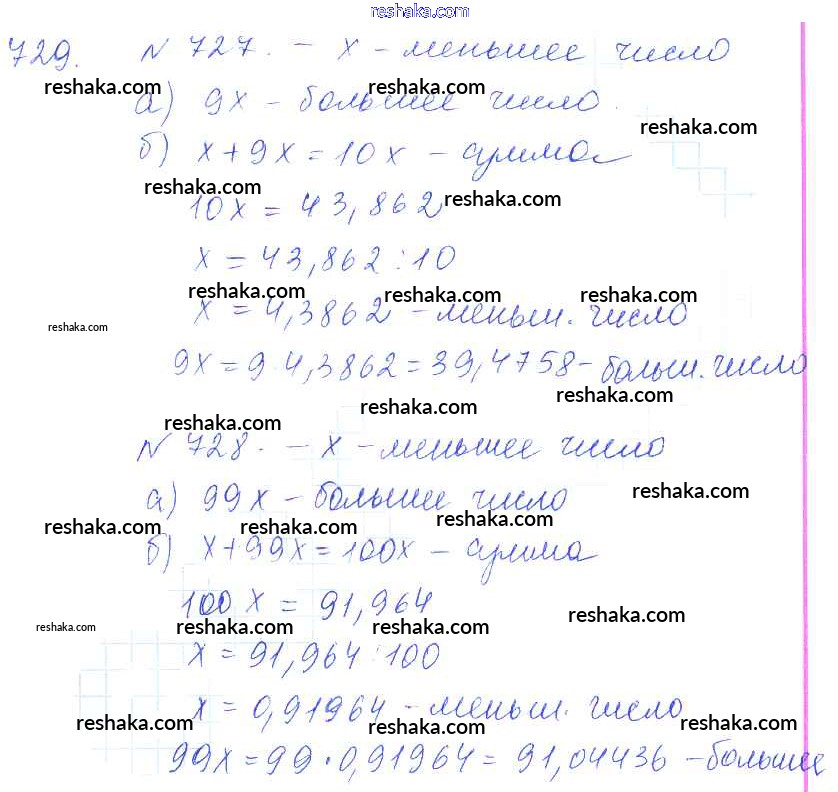 reshaka.com
729. № 727. – х – меньшее число
reshaka.com reshaka.com
а) 9х – большее число.
reshaka.com
б) х + 9х = 10х – сумма
reshaka.com reshaka.com
10х = 43,862
х = 43,862 : 10
reshaka.com reshaka.com reshaka.com
х = 4,3862 – меньш. число
reshaka.com
9х = 9·4,3862 = 39,4758 – больш. число
reshaka.com reshaka.com
reshaka.com
№ 728. – х – меньшее число
reshaka.com
а) 99х – большее число
reshaka.com reshaka.com reshaka.com
б) х + 99х = 100х – сумма
100х = 91,964
reshaka.com
reshaka.com reshaka.com reshaka.com
х = 91,964 : 100
х = 0,91964 – меньш. число
reshaka.com reshaka.com reshaka.com
99х = 99 · 0,91964 = 91,04436 – большее